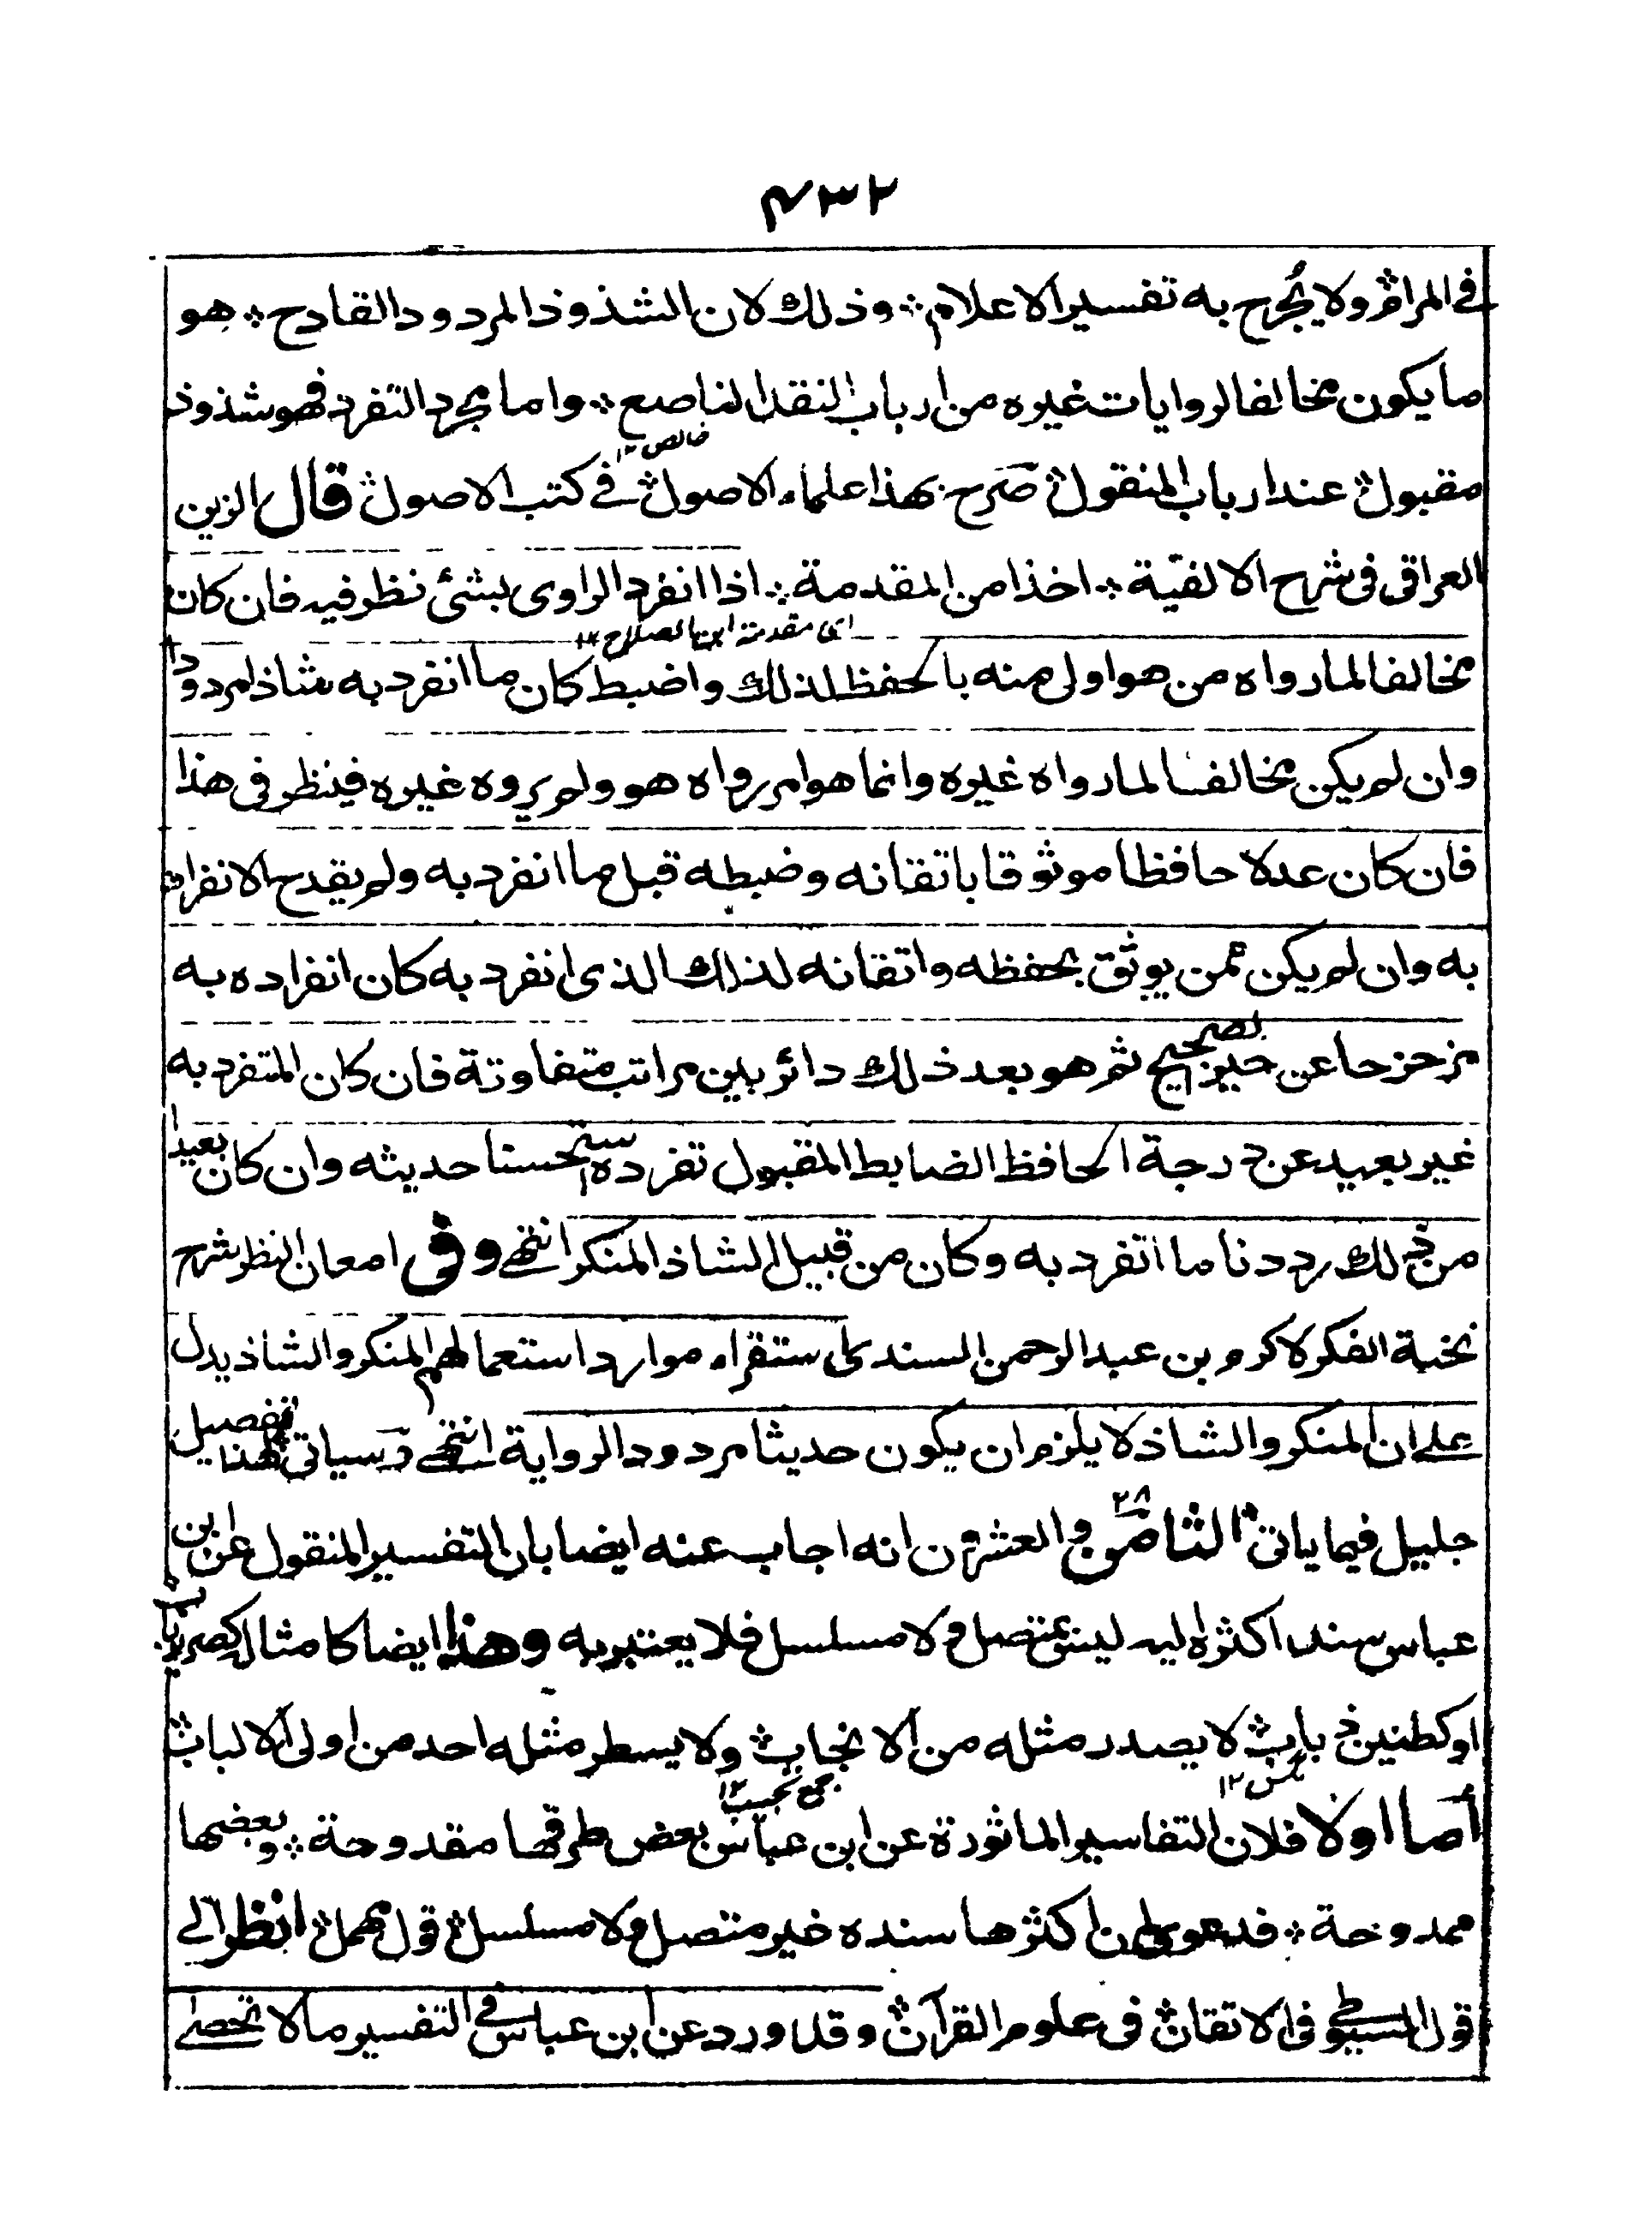 ٤٣٢
في المرام ولا يُجرح به تفسير الاعلام ؞ وذلك لان الشذوذ المردود القادح ؞ هو
ما يكون مخالفا لروايات غيره من ارباب النقد الناصع ؞ واما مجرد التفرد فهو شذوذ
خالص ١٢
مقبول ؞ عند ارباب المنقول ؞ صَرح بهذا علماء الاصول ؞ في كتب الاصول ؞ قال الزين
العراقى فى شرح الالفيّة ؞ اخذا من المقدمة ؞ اذا انفرد الراوى بشئ نظر فيه فان كان
اى مقدمة ابن الصلاح ١٢
مخالفا لما رواه من هو اولى منه بالحفظ لذلك واضبط كان ما انفرد به شاذا مردودا
وان لم يكن مخالفا لما رواه غيره وانما هو امر رواه هو ولم يروه غيره فينظر فى هذا
فان كان عدلا حافظا موثوقا باتقانه وضبطه قبل ما انفرد به ولم يقدح الانفراد
به وان لم يكن ممن يوثق بحفظه واتقانه لذلك الذى انفرد به كان انفراده به
مزحزحا عن حيز الصحيح ثم هو بعد ذلك دائر بين مراتب متفاوتة فان كان المتفرد به
غير بعيد عن درجة الحافظ الضابط المقبول تفرده استحسنا حديثه وان كان بعيدا
من ذلك رددنا ما اتفرد به وكان من قبيل الشاذ المنكر انتهى وفى امعان النظر شرح
نخبة الفكر لاكرم بن عبد الرحمن السندى استقراء موارد استعمالهم المنكر والشاذ يدل
على ان المنكر والشاذ لا يلزم ان يكون حديثا مردود الرواية انتهى وسياتى لهذا تفصيل
جليل فيما ياتى الثامن ٢٨ والعشرون انه اجاب عنه ايضا بان التفسير المنقول عن ابن
عباس سند اكثره اليه ليس بمتصل ولا مسلسل فلا يعتبر به وهذا ايضا كامثاله كصرير باب
او كطنين ذباب ؞ لا يصدر مثله من الانجاب ؞ ولا يسطر مثله احد من اولى الالباب ؞
مگس ١٢ جمع نجيب ١٢
أما اولا فلان التفاسير الماثورة عن ابن عباس بعض طرقها مقدوحة ؞ وبعضها
ممدوحة ؞ فدعوى ان اكثرها سنده غير متصل ولا مسلسل ؞ قول مهمل ؞ انظر الى
قول السيوطى فى الاتقان ؞ فى علوم القرآن ؞ وقد ورد عن ابن عباس فى التفسير ما لا تحصى